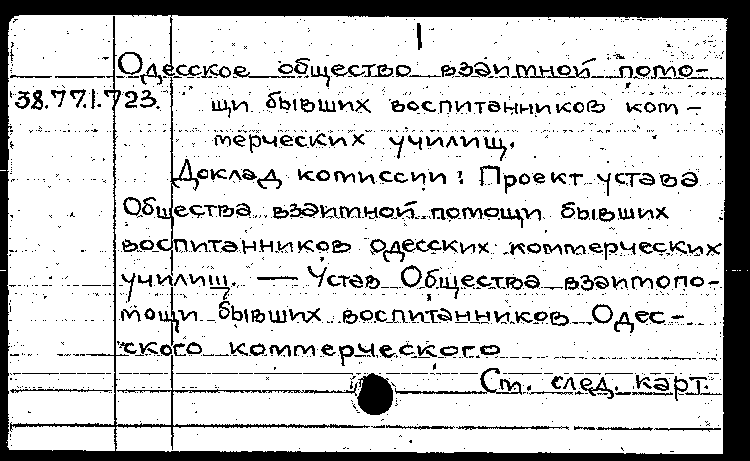 Одесское общество взаимной помо-
38.77.1.723. щи бывших воспитанников ком-
мерческих училищ.
Доклад комиссии: Проект устава
Общества взаимной помощи бывших
воспитанников одесских коммерческих
училищ. — Устав Общества взаимопо-
мощи бывших воспитанников Одес-
ского коммерческого
См. след. карт.